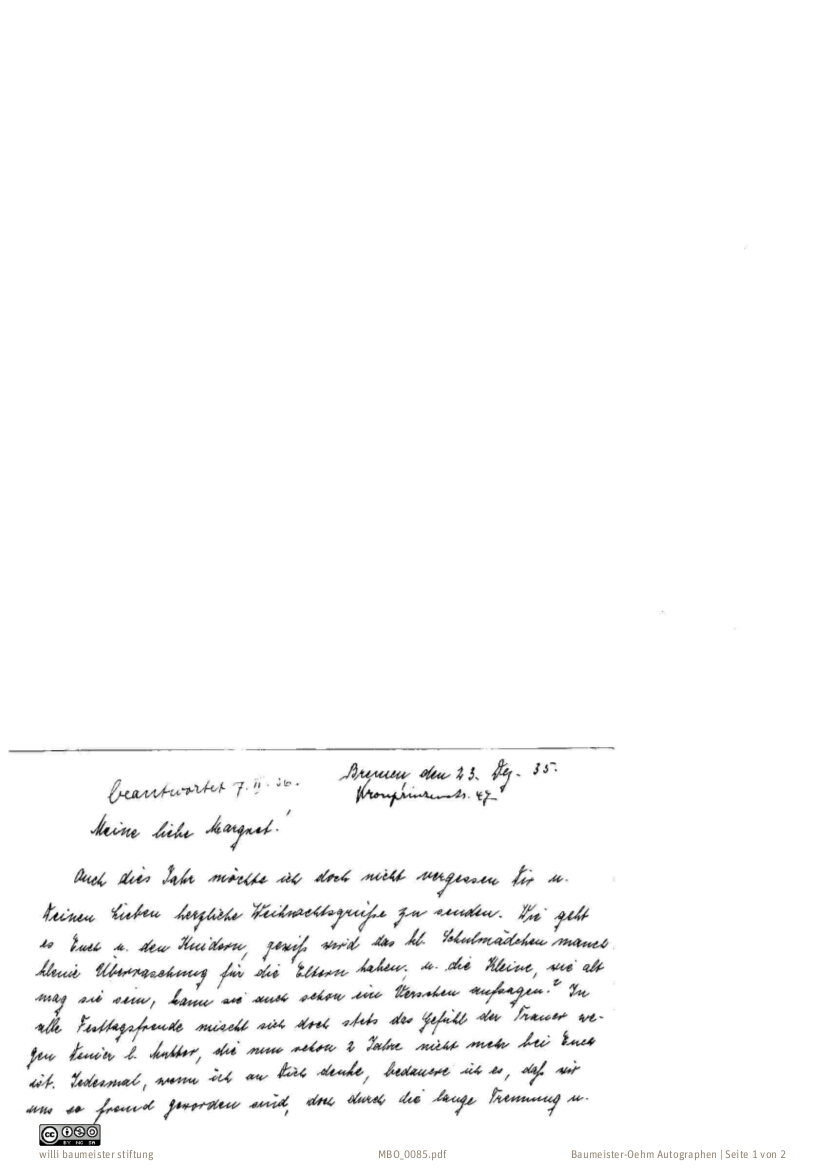 Bremen den 23. Dez. 35.
beantwortet 7. II. 36.
Kronprinzenstr. 47
Meine liebe Margret!
Auch dies Jahr möchte ich doch nicht vergessen Dir u.
Deinen Lieben herzliche Weihnachtsgrüße zu senden. Wie geht
es Euch u. den Kindern, gewiß wird das kl. Schulmädchen manch
kleine Überraschung für die Eltern haben. u. die Kleine, wie alt
mag sie sein, kann sie auch schon ein Verschen aufsagen? In
alle Festtagsfreude mischt sich doch stets das Gefühl der Trauer we-
gen Deiner l. Mutter, die nun schon 2 Jahre nicht mehr bei Euch
ist. Jedesmal, wenn ich an Dich denke, bedauere ich es, daß wir
uns so fremd geworden sind, doch durch die lange Trennung u.
CC BY NC SA
willi baumeister stiftung MBO_0085.pdf Baumeister-Oehm Autographen | Seite 1 von 2